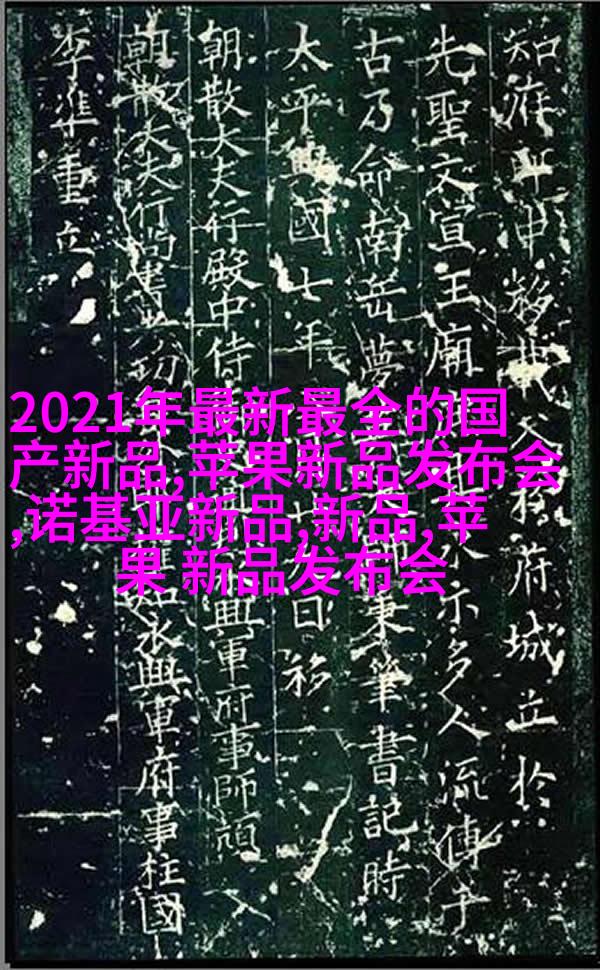 知府冲移載入於府城立於
先聖文宣王廟示多人流傳千
古乃命南岳夢秉筆書記時
太平興國七年日移
朝散大夫行殿中侍興軍府事師頏
朝散大夫行尚書知永興軍府事柱國
李準重立
2021年最新最全的国
产新品,苹果新品发布会
,诺基亚新品,新品,苹
果 新品发布会